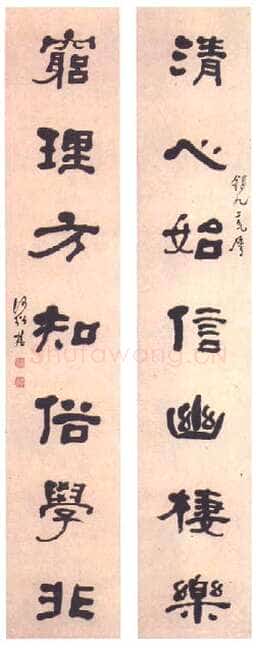 清心始信幽棲樂
窮理方知俗學非
何紹基
shufawang.cn